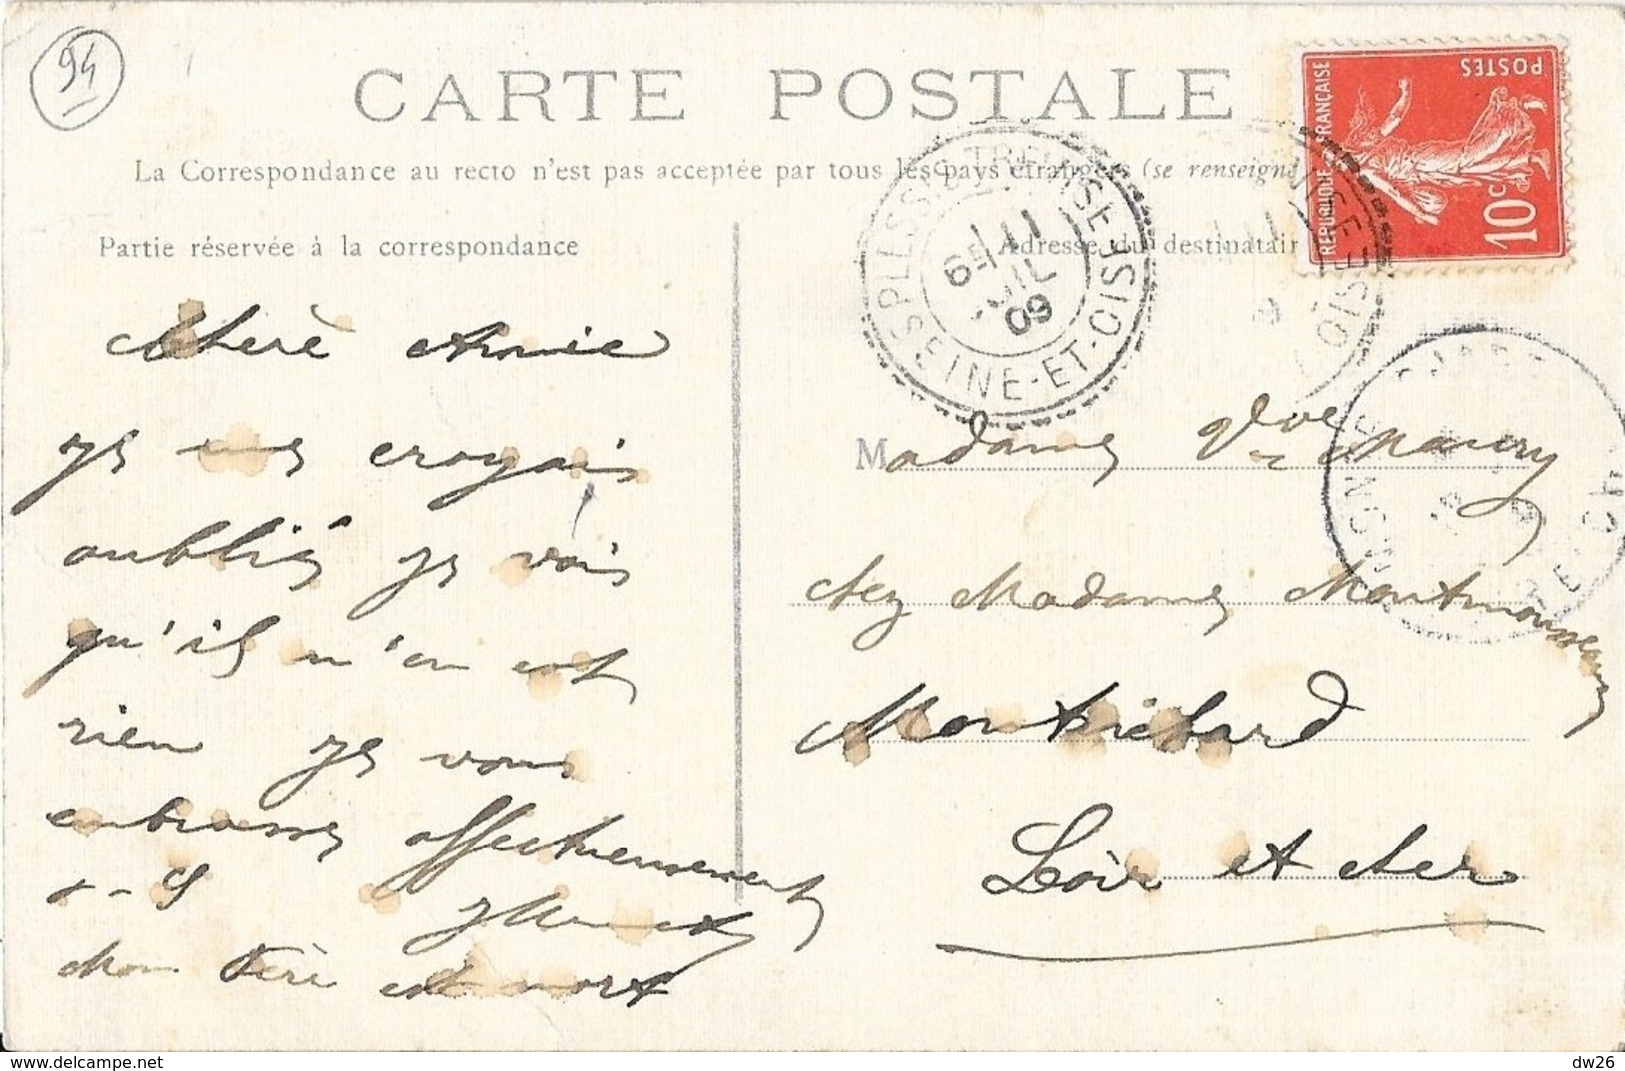 94
CARTE POSTALE
La Correspondance au recto n'est pas acceptée par tous les pays étrangers (se renseign
Partie réservée à la correspondance
Adresse du destinatair
RÉPUBLIQUE FRANÇAISE
POSTES
10c
PLESSIS-TREVISE
SEINE-ET-OISE
11
JUIL
09
OISE
Chère Amie
Je me croyais
oublié je vois
qu'il n'en est
rien Je vous
embrasse affectueusement
Mon Père est mort
Madame Vve Maury
chez Madame Montmousseau
Montrichard
Loir et Cher
dw26